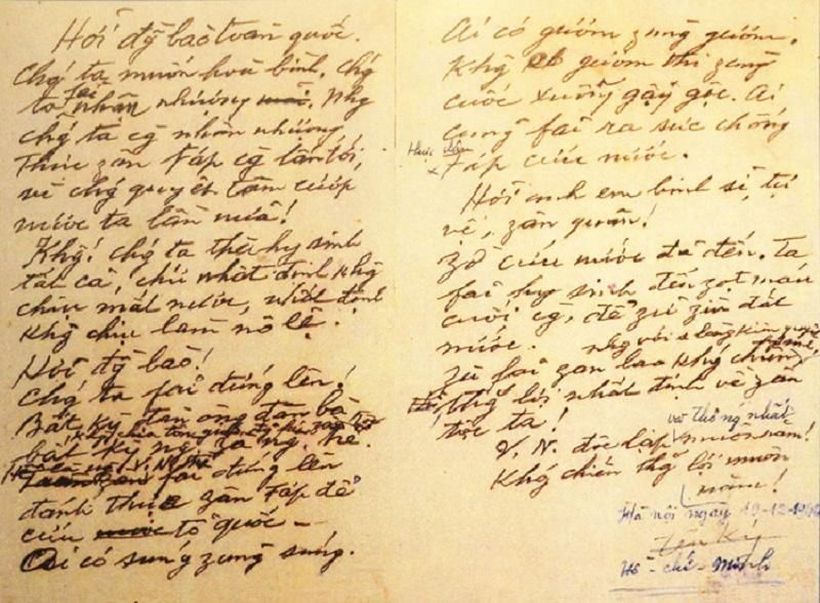 Hỡi đồ̀ng bào toàn quốc.
Chg' ta muốn hoà bình, chg'
ta fải nhân nhượng. Nhg
chg' ta cg̃ nhân nhượng,
thực zân Fáp cg̀ lấn tới,
vì chg' quyết tâm cướp
nước ta lần nữa!
Khg! chg' ta thà hy sinh
tất cả, chứ nhất định khg
chịu mất nước, nhất định
khg chịu làm nô lệ.
Hỡi đg̀ bào!
Chg' ta fải đứng lên!
Bất kỳ đàn ông đàn bà
bất kỳ ng̀ già ng̀ trẻ.
Hễ là ng̀ V.N. thì
fải đứng lên
đánh thực zân Fáp để
cứu tổ quốc –
Ai có súng zùng súng.
Ai có gươm zùng gươm,
Khg có gươm thì zùng
cuốc xuổng gậy gộc. Ai
cũng fải ra sức chống
thực zân
Fáp cứu nước.
Hỡi anh em binh sĩ, tự
vệ, zân quân!
Zờ cứu nước đã đến. Ta
fải hy sinh đến zọt máu
cuối cg̀, để zữ zìn đất
nước.
Zù fải zan lao khg' chiến,
nhg với 1 lòng kiên quyết
thg' lợi nhất định về zân
tộc ta!
và thống nhất
V.N. độc lập muôn năm!
Khg' chiến thg' lợi muôn
năm!
Hà nội ngày 19-12-1946
Hồ-chí-Minh